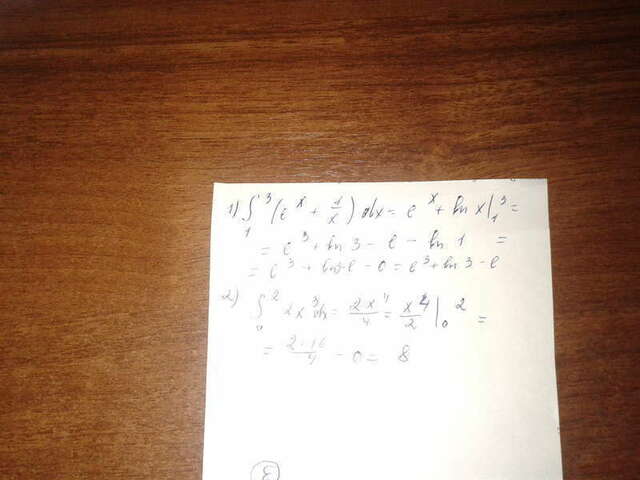 1) ∫₁³ (eˣ + 1/x) dx = eˣ + ln x |₁³ =
= e³ + ln 3 - e - ln 1 =
= e³ + ln3 - e - 0 = e³ + ln 3 - e
2) ∫₀² 2x³ dx = 2x⁴/4 = x⁴/2 |₀² =
= 2·16/4 - 0 = 8